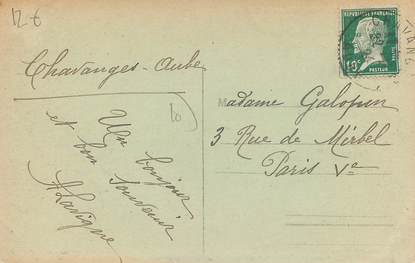 12-6
Chavanges-Aube
10
Un bonjour
et bon souvenir
ALavigne
RÉPUBLIQUE FRANÇAISE
10c
PASTEUR
Madame Galopin
3 Rue de Mirbel
Paris Ve